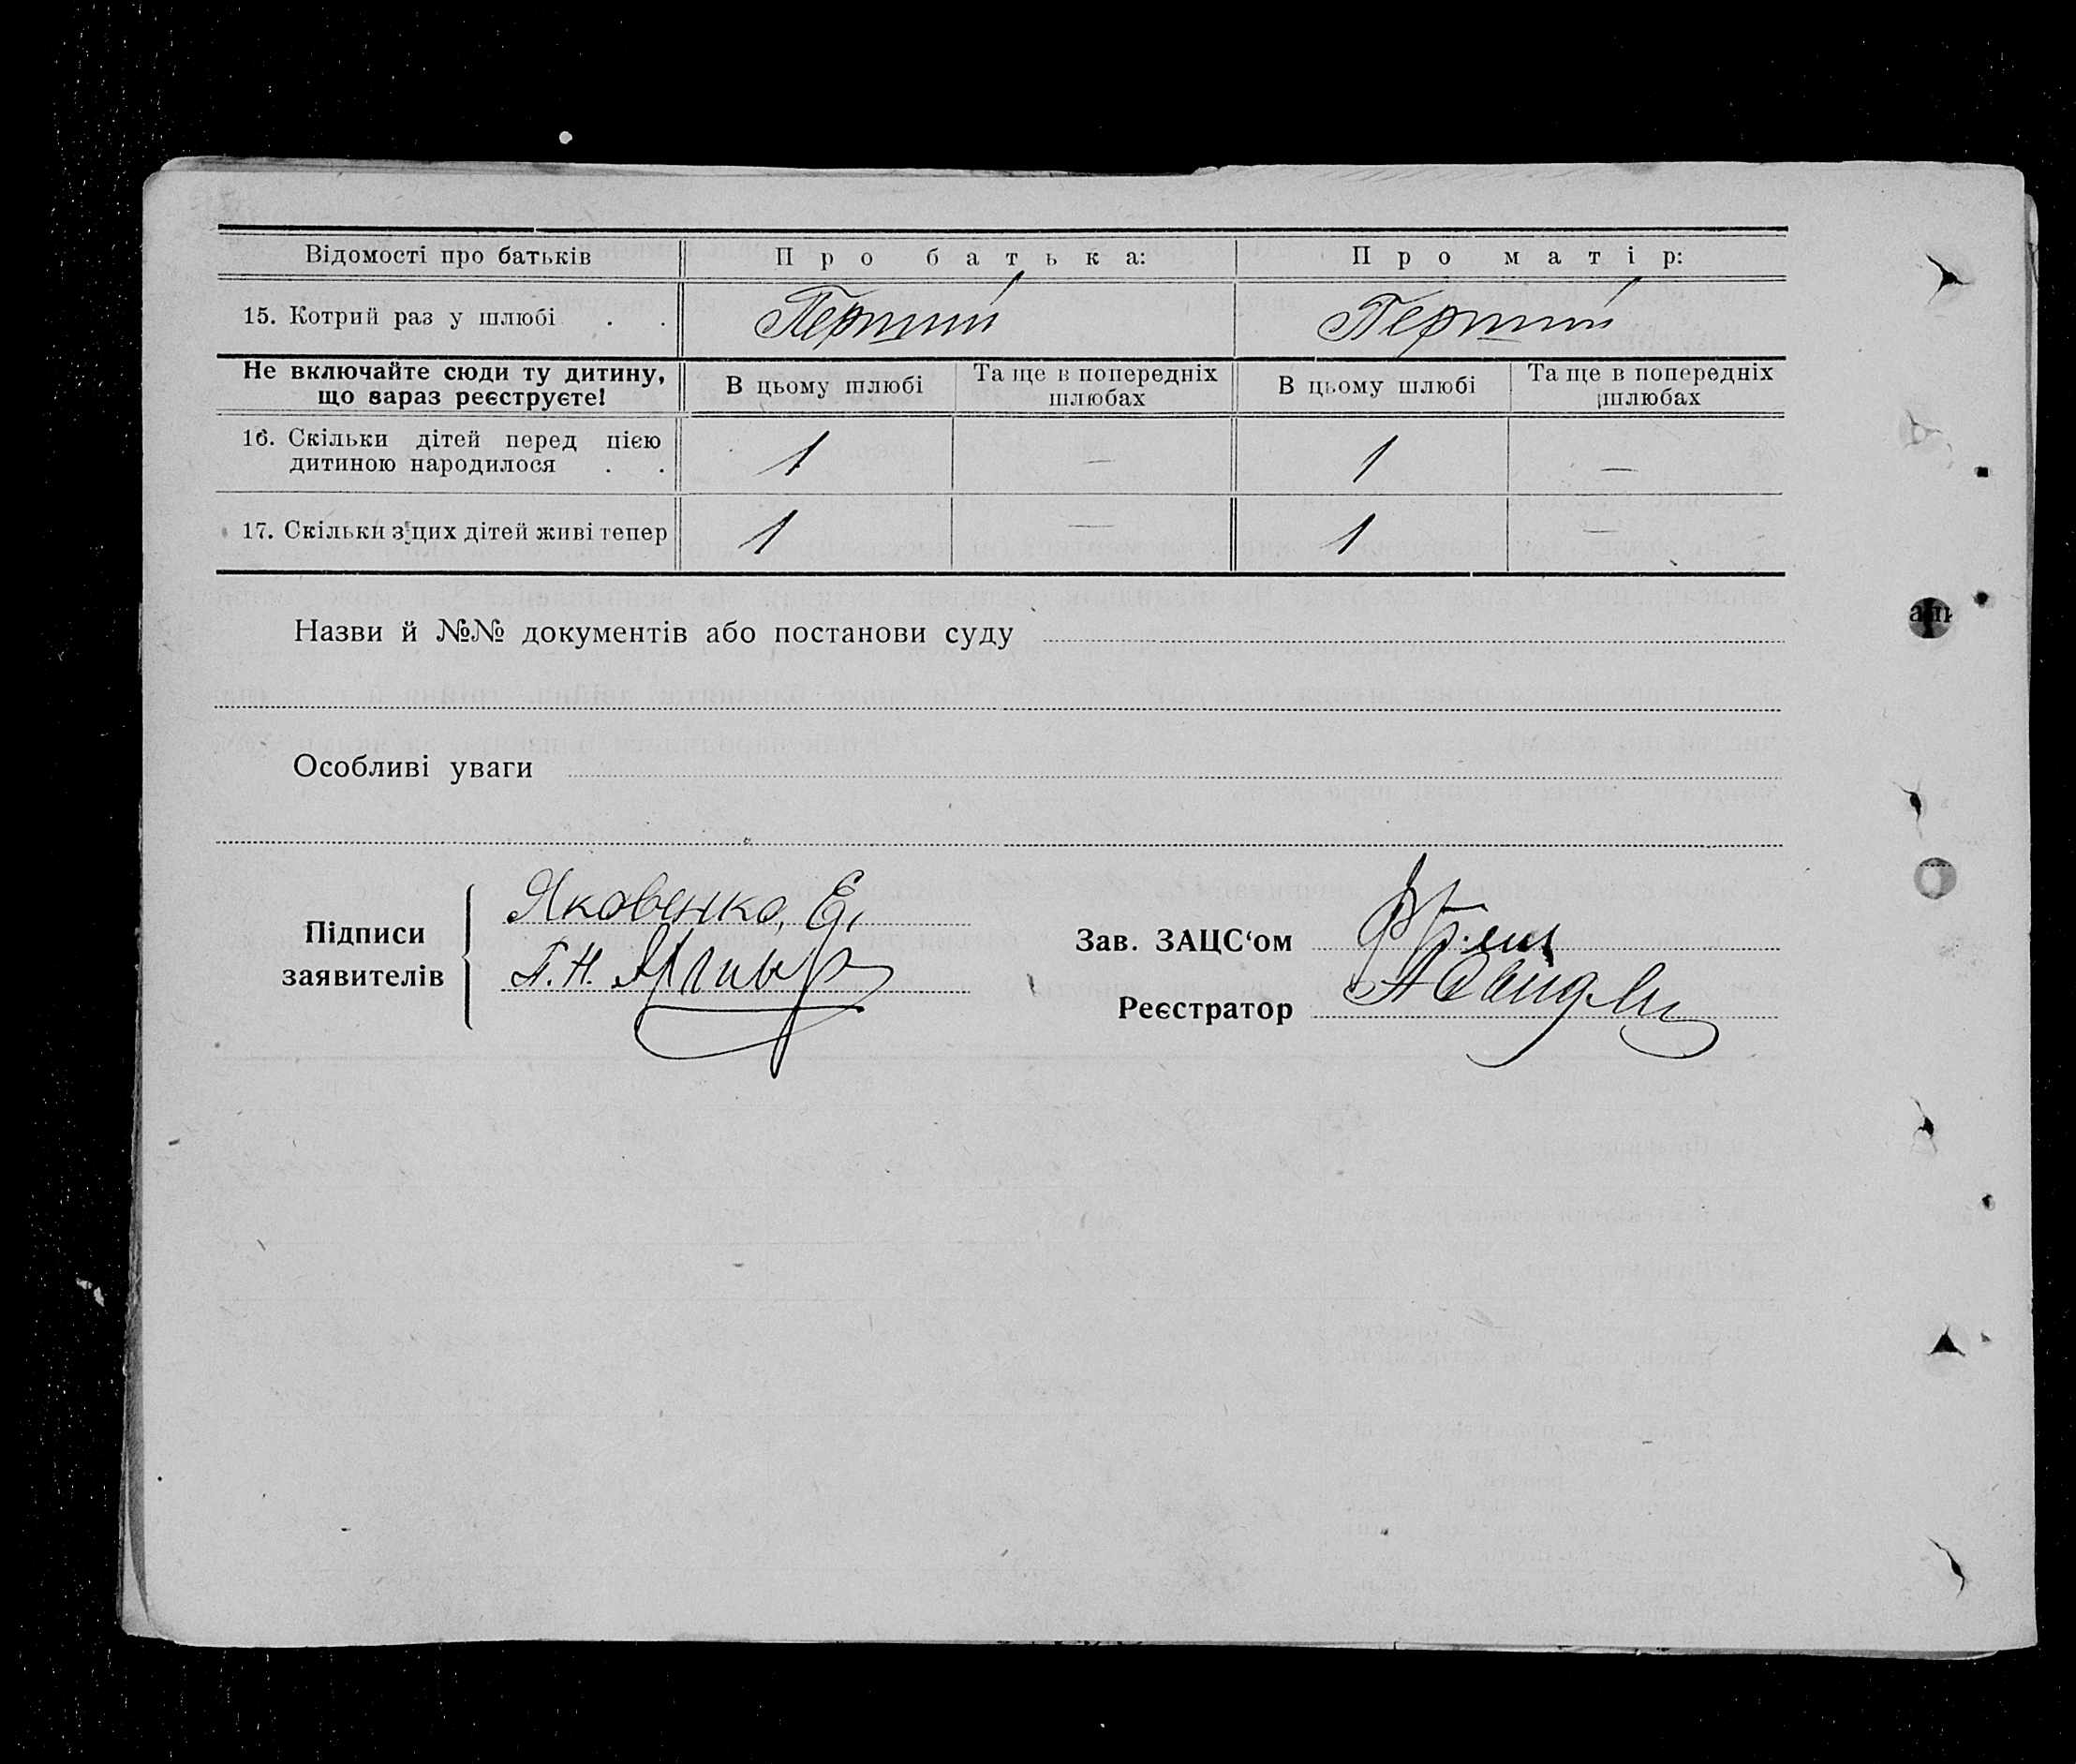 Відомості про батьків П р о б а т ь к а: П р о м а т і р:
15. Котрий раз у шлюбі . . Перший Перший
Не включайте сюди ту дитину, що зараз реєструєте! В цьому шлюбі Та ще в попередніх шлюбах В цьому шлюбі Та ще в попередніх шлюбах
16. Скільки дітей перед цією
дитиною народилося . . 1 — 1 —
17. Скільки з цих дітей живі тепер 1 — 1 —
Назви й №№ документів або постанови суду
Особливі уваги
Підписи заявителів
Яковенко, Е.
Зав. ЗАЦС‘ом
Реєстратор